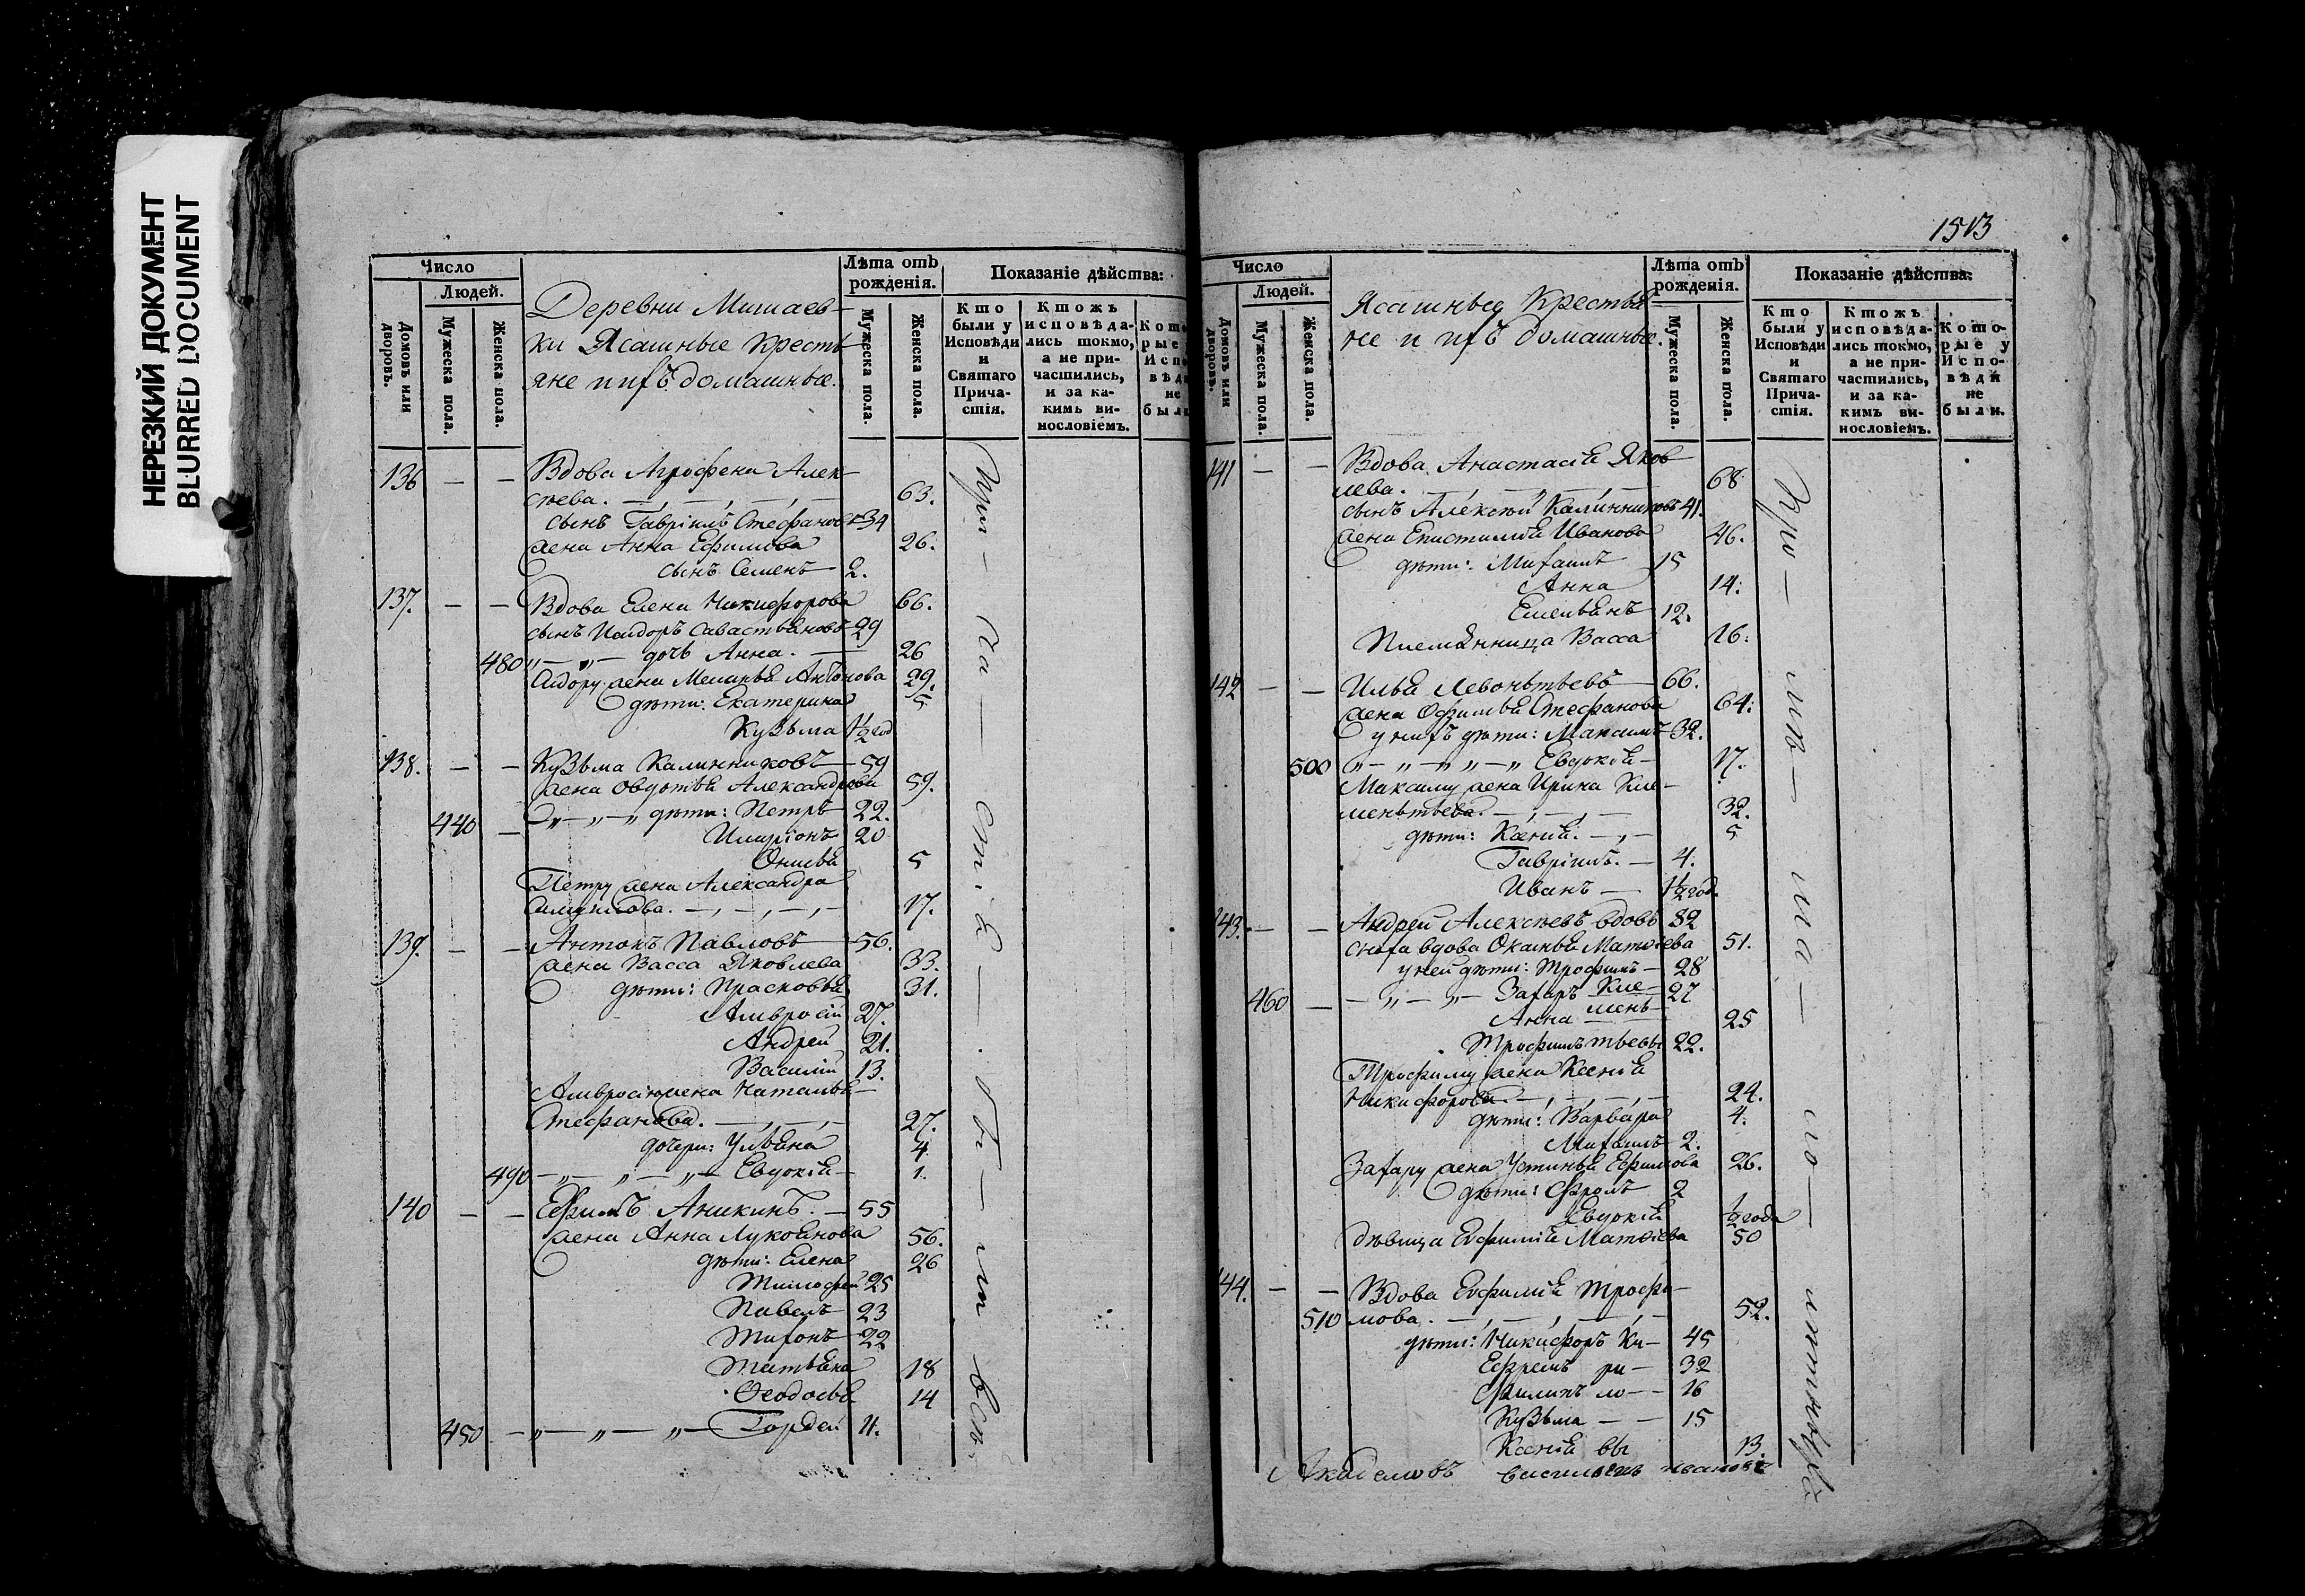 НЕРЕЗКИЙ ДОКУМЕНТ
BLURRED DOCUMENT
Число
Людей.
Домовъ или дворовъ.
Мужеска пола.
Женска пола.
Деревни Мишаев-
ки Ясашные Кресть
яне и ихъ домашные.
Лѣта отъ рожденія.
Мужеска пола.
Женска пола.
Показаніе дѣйства:
Кто были у Исповѣди и Святаго Причастія.
Ктожъ исповѣдались токмо, а не причастились, и за какимъ винословіемъ.
136 — — Вдова Агрофена Алек
сѣева. 63.
сынъ Гавріилъ Стефановъ 34
жена Анна Ефимова 26.
сынъ Семенъ 2.
137. — — Вдова Елена Никифорова 66.
сынъ Исидоръ Савастьяновъ 29
480 „ — „ — дочь Анна. — 26
Сидору жена Меланья Антонова 29.
дѣти: Екатерина 5
Кузьма 1½ год
138. — — Кузьма Калинниковъ — 59
жена Овдотья Александрова 59.
440 — „ — „ — „ дѣти: Петръ 22.
Иларіонъ 20
Онисья 5
Петру жена Александра
Самуилова. —, —, —, — 17.
139. — — Антонъ Павловъ — 56.
жена Васса Яковлева 33.
дѣти: Прасковья 31.
Амвросій 27.
Андрей 21.
Василій 13.
Амвросію жена Наталья
Стефанова. —, —, — 27.
дочери: Ульяна 4
490 — „ — „ — „ — Евдокія — 1.
140 — — Ефимъ Аникинъ. — 55
жена Анна Лукоянова 56.
дѣти: Елена 26
Тимофей 25
Павелъ 23
Тихонъ 22
Татьяна 18
Феодосья 14
450 — „ — „ — „ — Гордей 11.
При — ча — ст. я — . бы — ли всѣ.
1513
Число
Людей.
Домовъ или дворовъ.
Мужеска пола.
Женска пола.
Ясашные Крестья
не и ихъ домашные.
Лѣта отъ рожденія.
Мужеска пола.
Женска пола.
Показаніе дѣйства:
Кто были у Исповѣди и Святаго Причастія.
Ктожъ исповѣдались токмо, а не причастились, и за какимъ винословіемъ.
Которые у Исповѣди не были.
141 — — Вдова Анастасія Яков
лева. 68
сынъ Алексѣй Калинниковъ 41.
жена Епистимія Иванова 46.
дѣти: Михаилъ 15
Анна 14.
Емельянъ 12.
Племянница Васса 16.
142 — — Илья Левоньтьевъ — 66.
жена Офимья Стефанова 64.
у нихъ дѣти: Максимъ 32.
500 „ — „ — „ „ — „ Евдокія — 17.
Максиму жена Ирина Кле-
меньтьева. —, —, — 32.
дѣти: Ксенія. —, — 5
Гавріилъ. — 4.
Иванъ — 1½ год.
143. — — Андрей Алексѣевъ вдовъ 82
сноха вдова Оксинья Матвіева 51.
у ней дѣти: Трофимъ — 28
460 — — „ — „ — Захаръ Кле- 27
Анна мень- 25
Трофимъ тьевы 22.
Трофиму жена Ксенія
Никифорова. —, —, —, — 24.
дѣти: Варвара 4.
Михаилъ 2.
Захару жена Устинья Ефимова 26.
дѣти: Фролъ 2
Евдокія ½ года
дѣвица Евфимія Матвіева 50
144. — — Вдова Евфимія Трофи-
510 мова. 52.
дѣти: Никифоръ Ки- 45
Ефремъ ри- 32
Филипъ ло- 16
Кузьма — — 15
Ксенія вы 13.